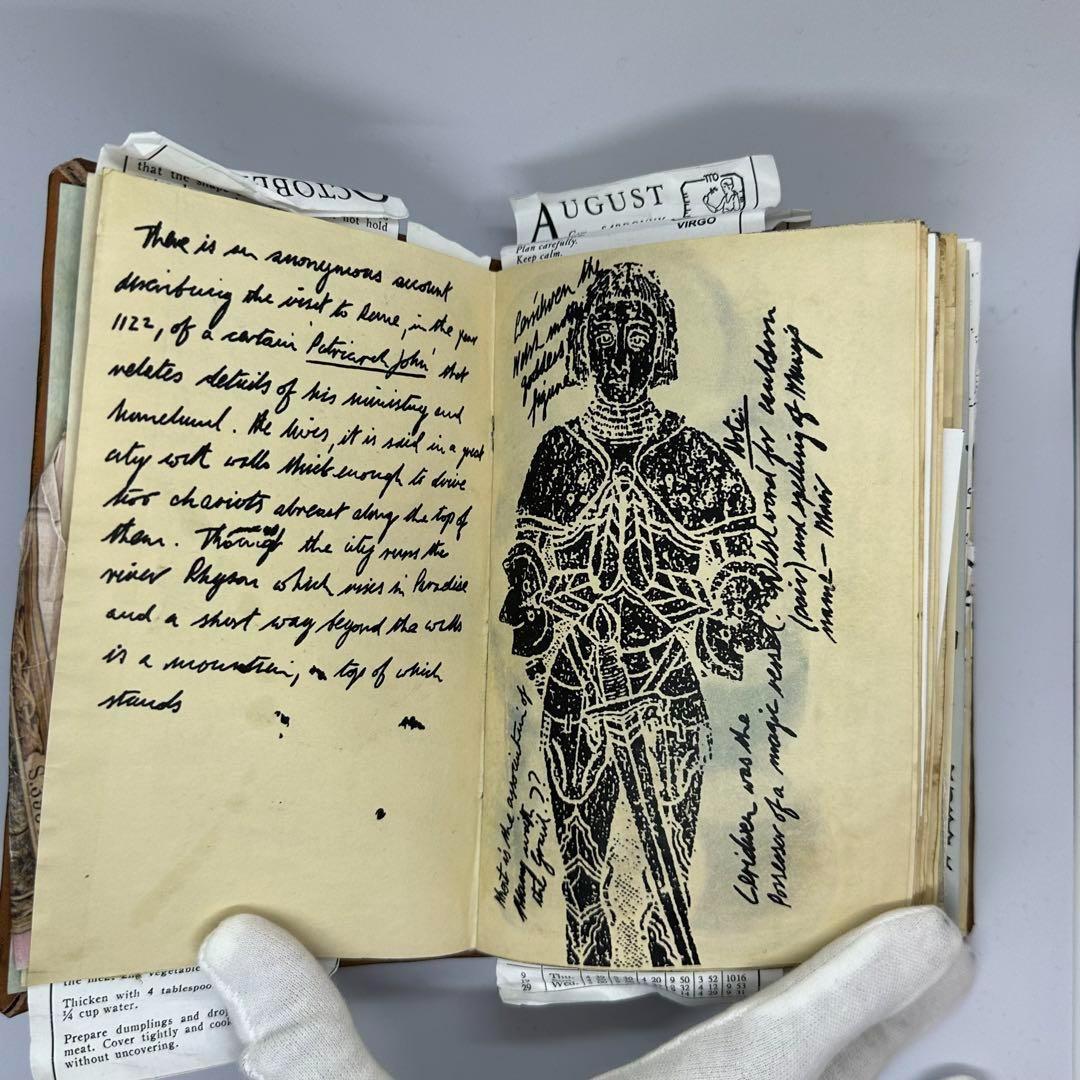 that the shape
OCTOBER
not hold
There is an anonymous account
describing the visit to Rome, in the year
1122, of a certain 'Patriarch John' that
relates details of his ministry and
homeland. He lives, it is said in a great
city with walls thick enough to drive
two chariots abreast along the top of
them. Through the city runs the
river Physon which rises in Paradise
and a short way beyond the walls
is a mountain, on top of which
stands
Thicken with 4 tablespoo
¾ cup water.
Prepare dumplings and drop
meat. Cover tightly and cook
without uncovering.
AUGUST
VIRGO
Plan carefully.
Keep calm.
Cerridwen the
Welsh mother
goddess
figure
Note:
(Welsh word for cauldron
(pair) and spelling of Mary's
name — Mair
Ceridwen was the
Possessor of a magic vessel
What is the association of
Mary with
the Grail??
9 Thu. 4 20 9 50 3 52 1016
29 Wed.